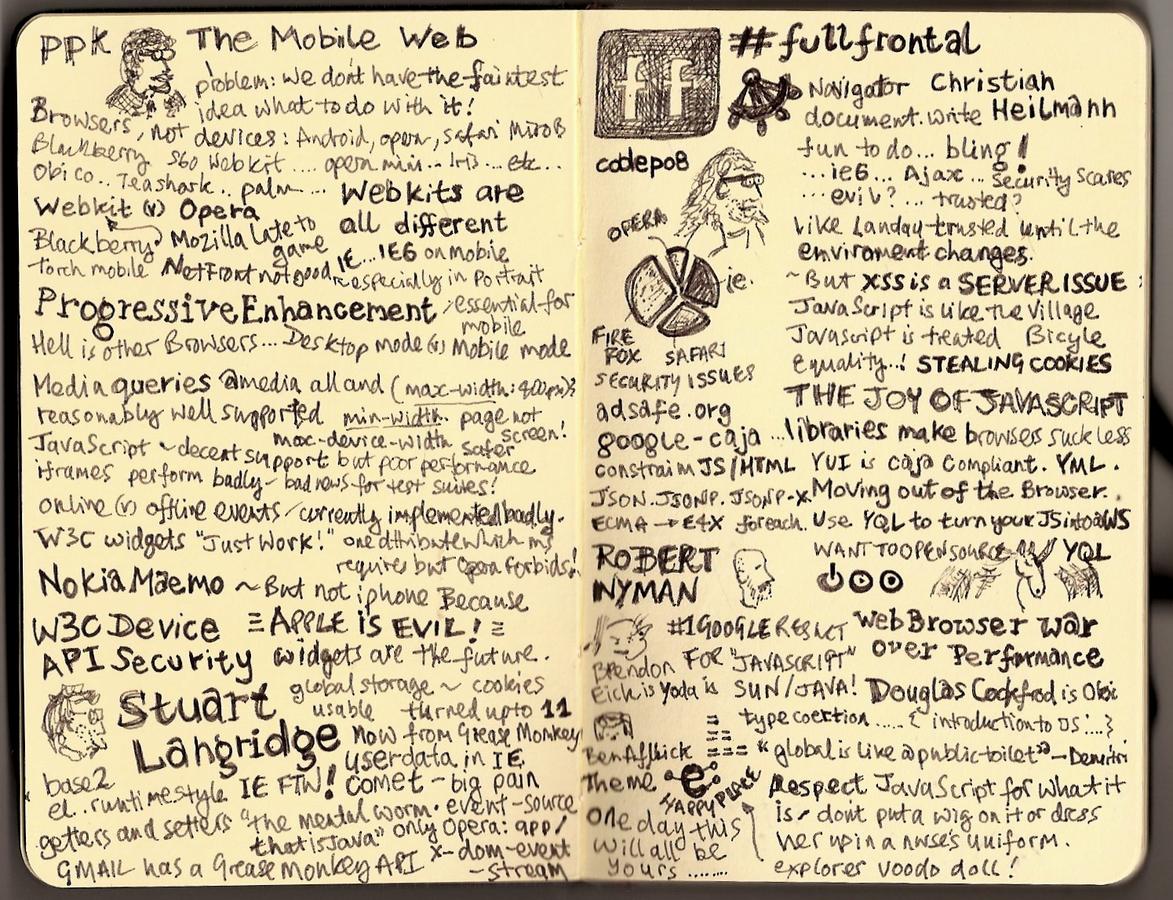 ppk The Mobile Web
problem: we don't have the faintest
idea what to do with it!
Browsers, not devices: Android, opera, safari MicroB
Blackberry S60 Webkit .... opera mini... Iris ... etc...
Obico.. Teashark.. palm...
Webkits are
all different
Webkit (v) Opera
Blackberry Mozilla late to
game
torch mobile NetFront not good
IE...IE6 on mobile
especially in Portrait
Progressive Enhancement essential for
mobile
Hell is other Browsers... Desktop mode (v) Mobile mode
Media queries @media all and (max-width: 400px)}
reasonably well supported min-width. page not
screen!
max-device-width safer
JavaScript ~ decent support but poor performance
iframes perform badly ~ bad news for test suites!
online (v) offline events / currently implemented badly.
W3C widgets "Just Work!" one attribute which ms
requires but Opera forbids!
Nokia Maemo ~ But not iphone Because
W3C Device APPLE is EVIL!
API Security widgets are the future.
Stuart
Langridge
global storage ~ cookies
usable turned up to 11
Now from Grease Monkey
userdata in IE
base2
el..runtimestyle IE FTW! comet - big pain
getters and setters "the mental worm
that is Java"
event-source
only Opera: app/
x-dom-event
-stream
GMAIL has a Grease Monkey API
ff #fullfrontal
Navigator Christian
document.write Heilmann
fun to do... bling!
codepo8
...ie6... Ajax... Security Scares
...evil?... trusted?
Like Landay trusted until the
enviroment changes.
~But XSS is a SERVER ISSUE:
JavaScript is like the Village
Javascript is treated Bicyle
equality..! STEALING COOKIES
OPERA
ie.
FIRE
FOX SAFARI
SECURITY ISSUES
adsafe.org
google-caja
constraim JS/HTML
JSON. JSONP. JSONP-X
ECMA → E4X foreach.
THE JOY OF JAVASCRIPT
...libraries make browsers suck less
YUI is caja Compliant. YML.
Moving out of the Browser.
Use YQL to turn your JS into a WS
WANT TO OPEN SOURCE YQL
ROBERT
NYMAN
#1 GOOGLE RESULT
FOR "JAVASCRIPT"
is SUN/JAVA!
Brendon
Eich is Yoda
Web Browser war
over Performance
Douglas Cockfrod is Obi
type coertion ..... { introduction to DS :...}
== ===
"global is like a public toilet" - Demitri
Ben Affllick
Theme
e
HAPPY PLACE
One day this
will all be
yours ........
Respect JavaScript for what it
is, don't put a wig on it or dress
her up in a nurse's uniform.
explorer voodo doll!